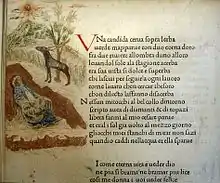 Vna candida cerua sopra lherba
uerde mapparue con duo corna doro
fra due riuiere allombra dun alloro
leuandol sole ala stagione acerba
era sua uista si dolce e superba
chi lasciai per seguirla ogni lauoro
come lauaro chen cercar thesoro
chon dilecto laffanno disacerba
Nessun mi tocchi al bel collo dintorno
scripto auea di diamanti & di topaci
libera farmi al mio cesare parue
et era il sol gia uolto al mezzo giorno
gliocchi miei stanchi di mirar non satii
quando caddi nellacqua et ella sparue
I come eterna uita è ueder dio
ne piu si brama ne bramar piu lice
cosi me donna il uoi ueder felice